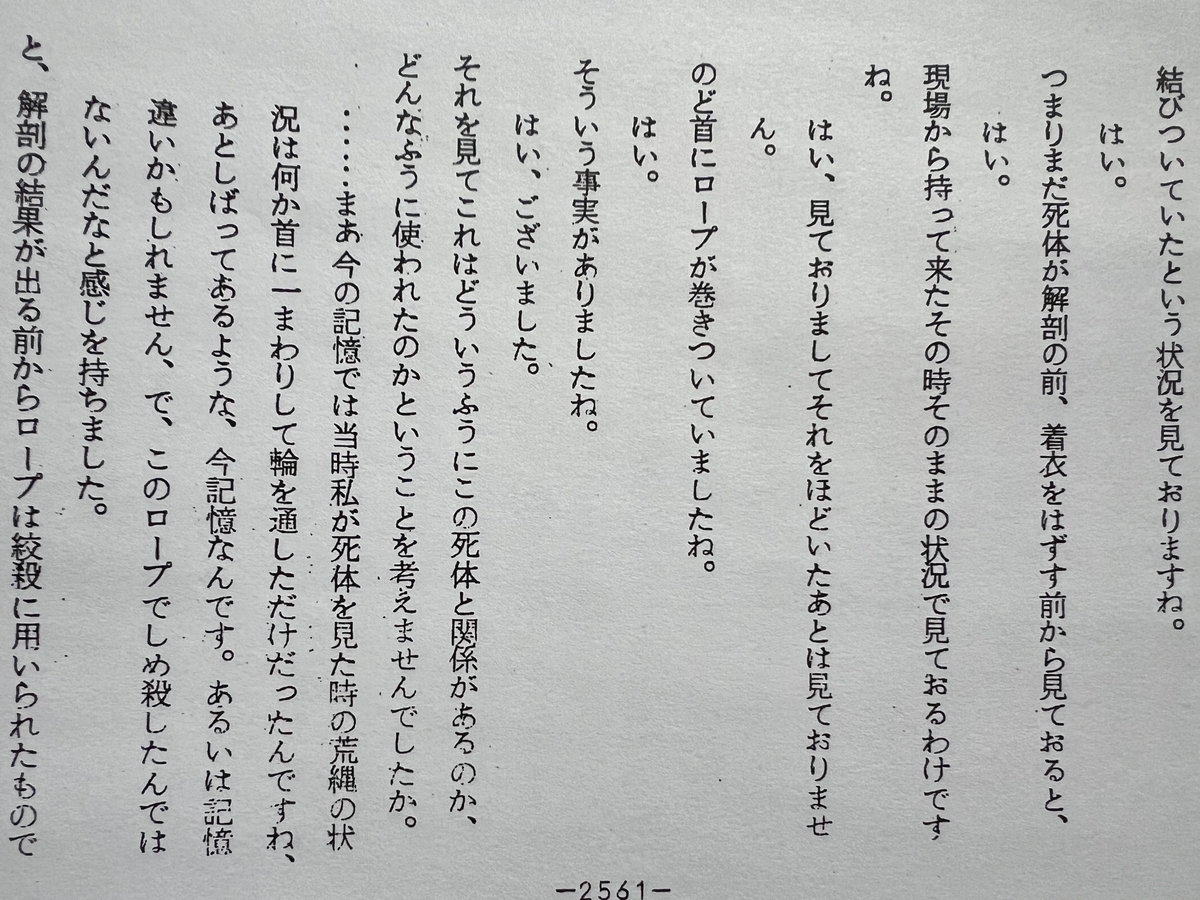 結びついていたという状況を見ておりますね。
はい。
つまりまだ死体が解剖の前、着衣をはずす前から見ておると、
はい。
現場から持って来たその時そのままの状況で見ておるわけです
ね。
はい、見ておりましてそれをほどいたあとは見ておりませ
ん。
のど首にロープが巻きついていましたね。
はい。
そういう事実がありましたね。
はい、ございました。
それを見てこれはどういうふうにこの死体と関係があるのか、
どんなふうに使われたのかということを考えませんでしたか。
……まあ今の記憶では当時私が死体を見た時の荒縄の状
況は何か首に一まわりして輪を通しただけだったんですね、
あとしばってあるような、今記憶なんです。あるいは記憶
違いかもしれません、で、このロープでしめ殺したんでは
ないんだなと感じを持ちました。
と、解剖の結果が出る前からロープは絞殺に用いられたもので
—2561—